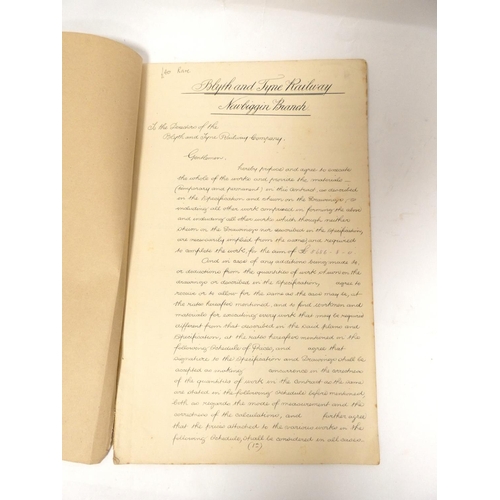 Blyth and Tyne Railway
Newbiggin Branch.
To the Directors of the
Blyth and Tyne Railway Company.
Gentlemen,
hereby propose and agree to execute
the whole of the works and provide the materials
(temporary and permanent) in this Contract, as described
in the Specification and shewn on the Drawings,
including all other work comprised in forming the above
and including all other works which though neither
shewn in the Drawings nor described in the Specification,
are necessarily implied from the same, and requisite
to complete the work, for the sum of £
And in case of any additions being made to,
or deductions from the quantities of work shewn on the
drawings or described in the Specification, agree to
receive or to allow for the same as the case may be, at
the rates hereafter mentioned, and to find workmen and
materials for executing every work that may be required
different from that described in the said plans and
Specification, at the rates hereafter mentioned in the
following Schedule of Prices, and agree that
signature to the Specification and Drawings shall be
accepted as marking concurrence in the correctness
of the quantities of work in the Contract as the same
are stated in the following Schedule before mentioned
both as regards the mode of measurement and the
correctness of the calculations, and further agree
that the prices attached to the various works in the
following Schedule, shall be considered in all cases